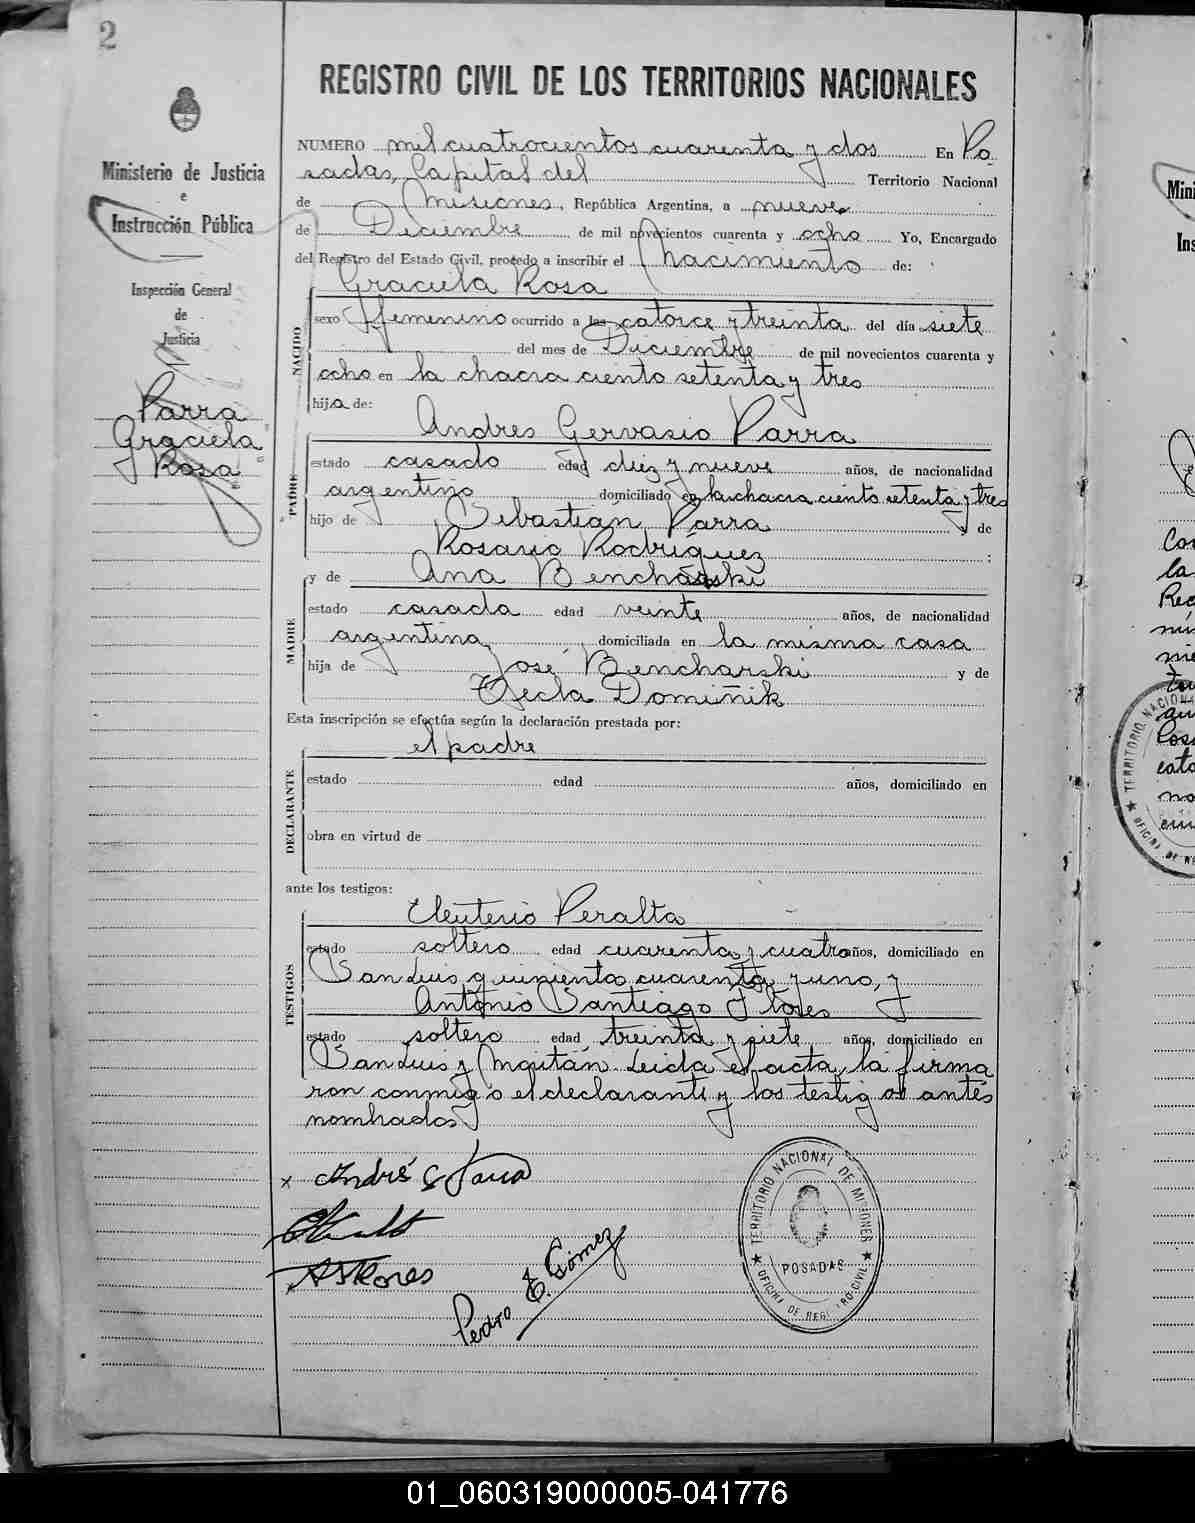 2
REGISTRO CIVIL DE LOS TERRITORIOS NACIONALES
Ministerio de Justicia
e
Instrucción Pública
Inspección General
de
Justicia
Parra
Graciela
Rosa
NUMERO mil cuatrocientos cuarenta y dos En Po
sadas, Capital del Territorio Nacional
de Misiones, República Argentina, a nueve
de Diciembre de mil novecientos cuarenta y ocho Yo, Encargado
del Registro del Estado Civil, procedo a inscribir el Nacimiento de:
Graciela Rosa
NACIDO
sexo femenino ocurrido a las catorce y treinta del día siete
del mes de Diciembre de mil novecientos cuarenta y
ocho en la chacra ciento setenta y tres
hija de:
Andres Gervasio Parra
PADRE
estado casado edad diez y nueve años, de nacionalidad
argentino domiciliado en la chacra ciento setenta y tres
hijo de Sebastián Parra y de
Rosario Rodríguez :
y de Ana Bencharski
MADRE
estado casada edad veinte años, de nacionalidad
argentina domiciliada en la misma casa
hija de José Bencharski y de
Tecla Domiñik
Esta inscripción se efectúa según la declaración prestada por:
el padre
DECLARANTE
estado edad años, domiciliado en
obra en virtud de
ante los testigos:
Eleuterio Peralta
TESTIGOS
estado soltero edad cuarenta y cuatro años, domiciliado en
San Luis quinientos cuarenta y uno, y
Antonio Santiago Flores
estado soltero edad treinta y siete años, domiciliado en
San Luis y Maitán. Leida el acta, la firma
ron conmigo el declarante y los testigos antes
nombrados
x André G Parra
ASFlores
Pedro E. Gómez
TERRITORIO NACIONAL DE MISIONES
POSADAS
OFICINA DE REGISTRO CIVIL
Mini
Ins
Con
la
Rec
TERRITORIO NACIONAL
OFICINA DE RE
01_060319000005-041776